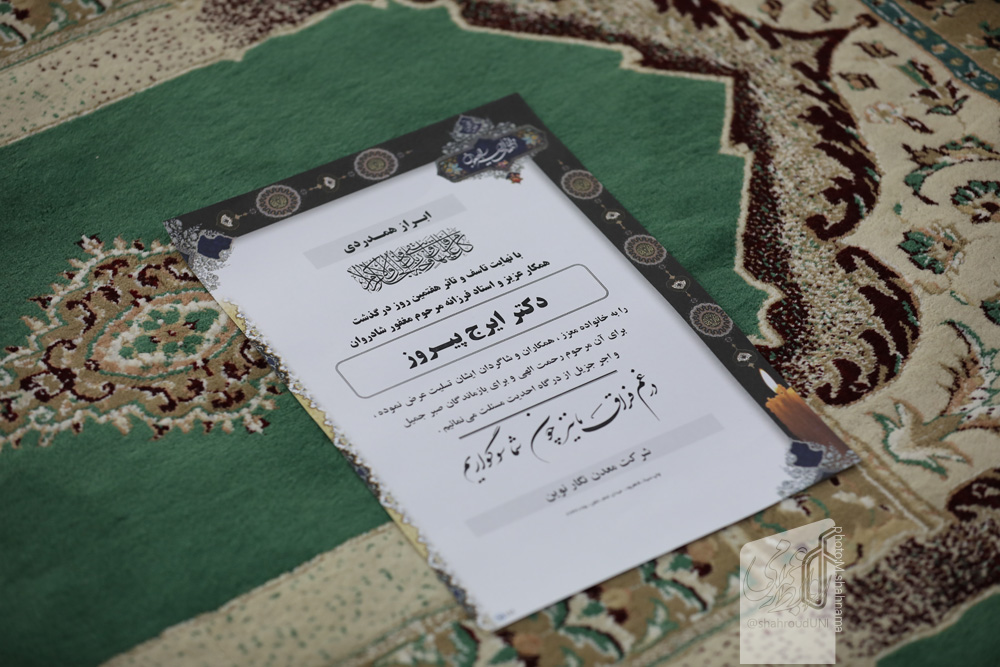 ابراز همدردی
با نهایت تاسف و تاثر هفتمین روز درگذشت
همکار عزیز و استاد فرزانه مرحوم مغفور شادروان
دکتر ایرج پیروز
را به خانواده معزز ، همکاران و شاگردان ایشان تسلیت عرض نموده ،
برای آن مرحوم رحمت الهی و برای بازماندگان صبر جمیل
و اجر جزیل از درگاه احدیت مسئلت می نمائیم .
زغم فراق ما نیز چون شما سوگواریم
شرکت معدن نگار نوین
@shahroudUNI